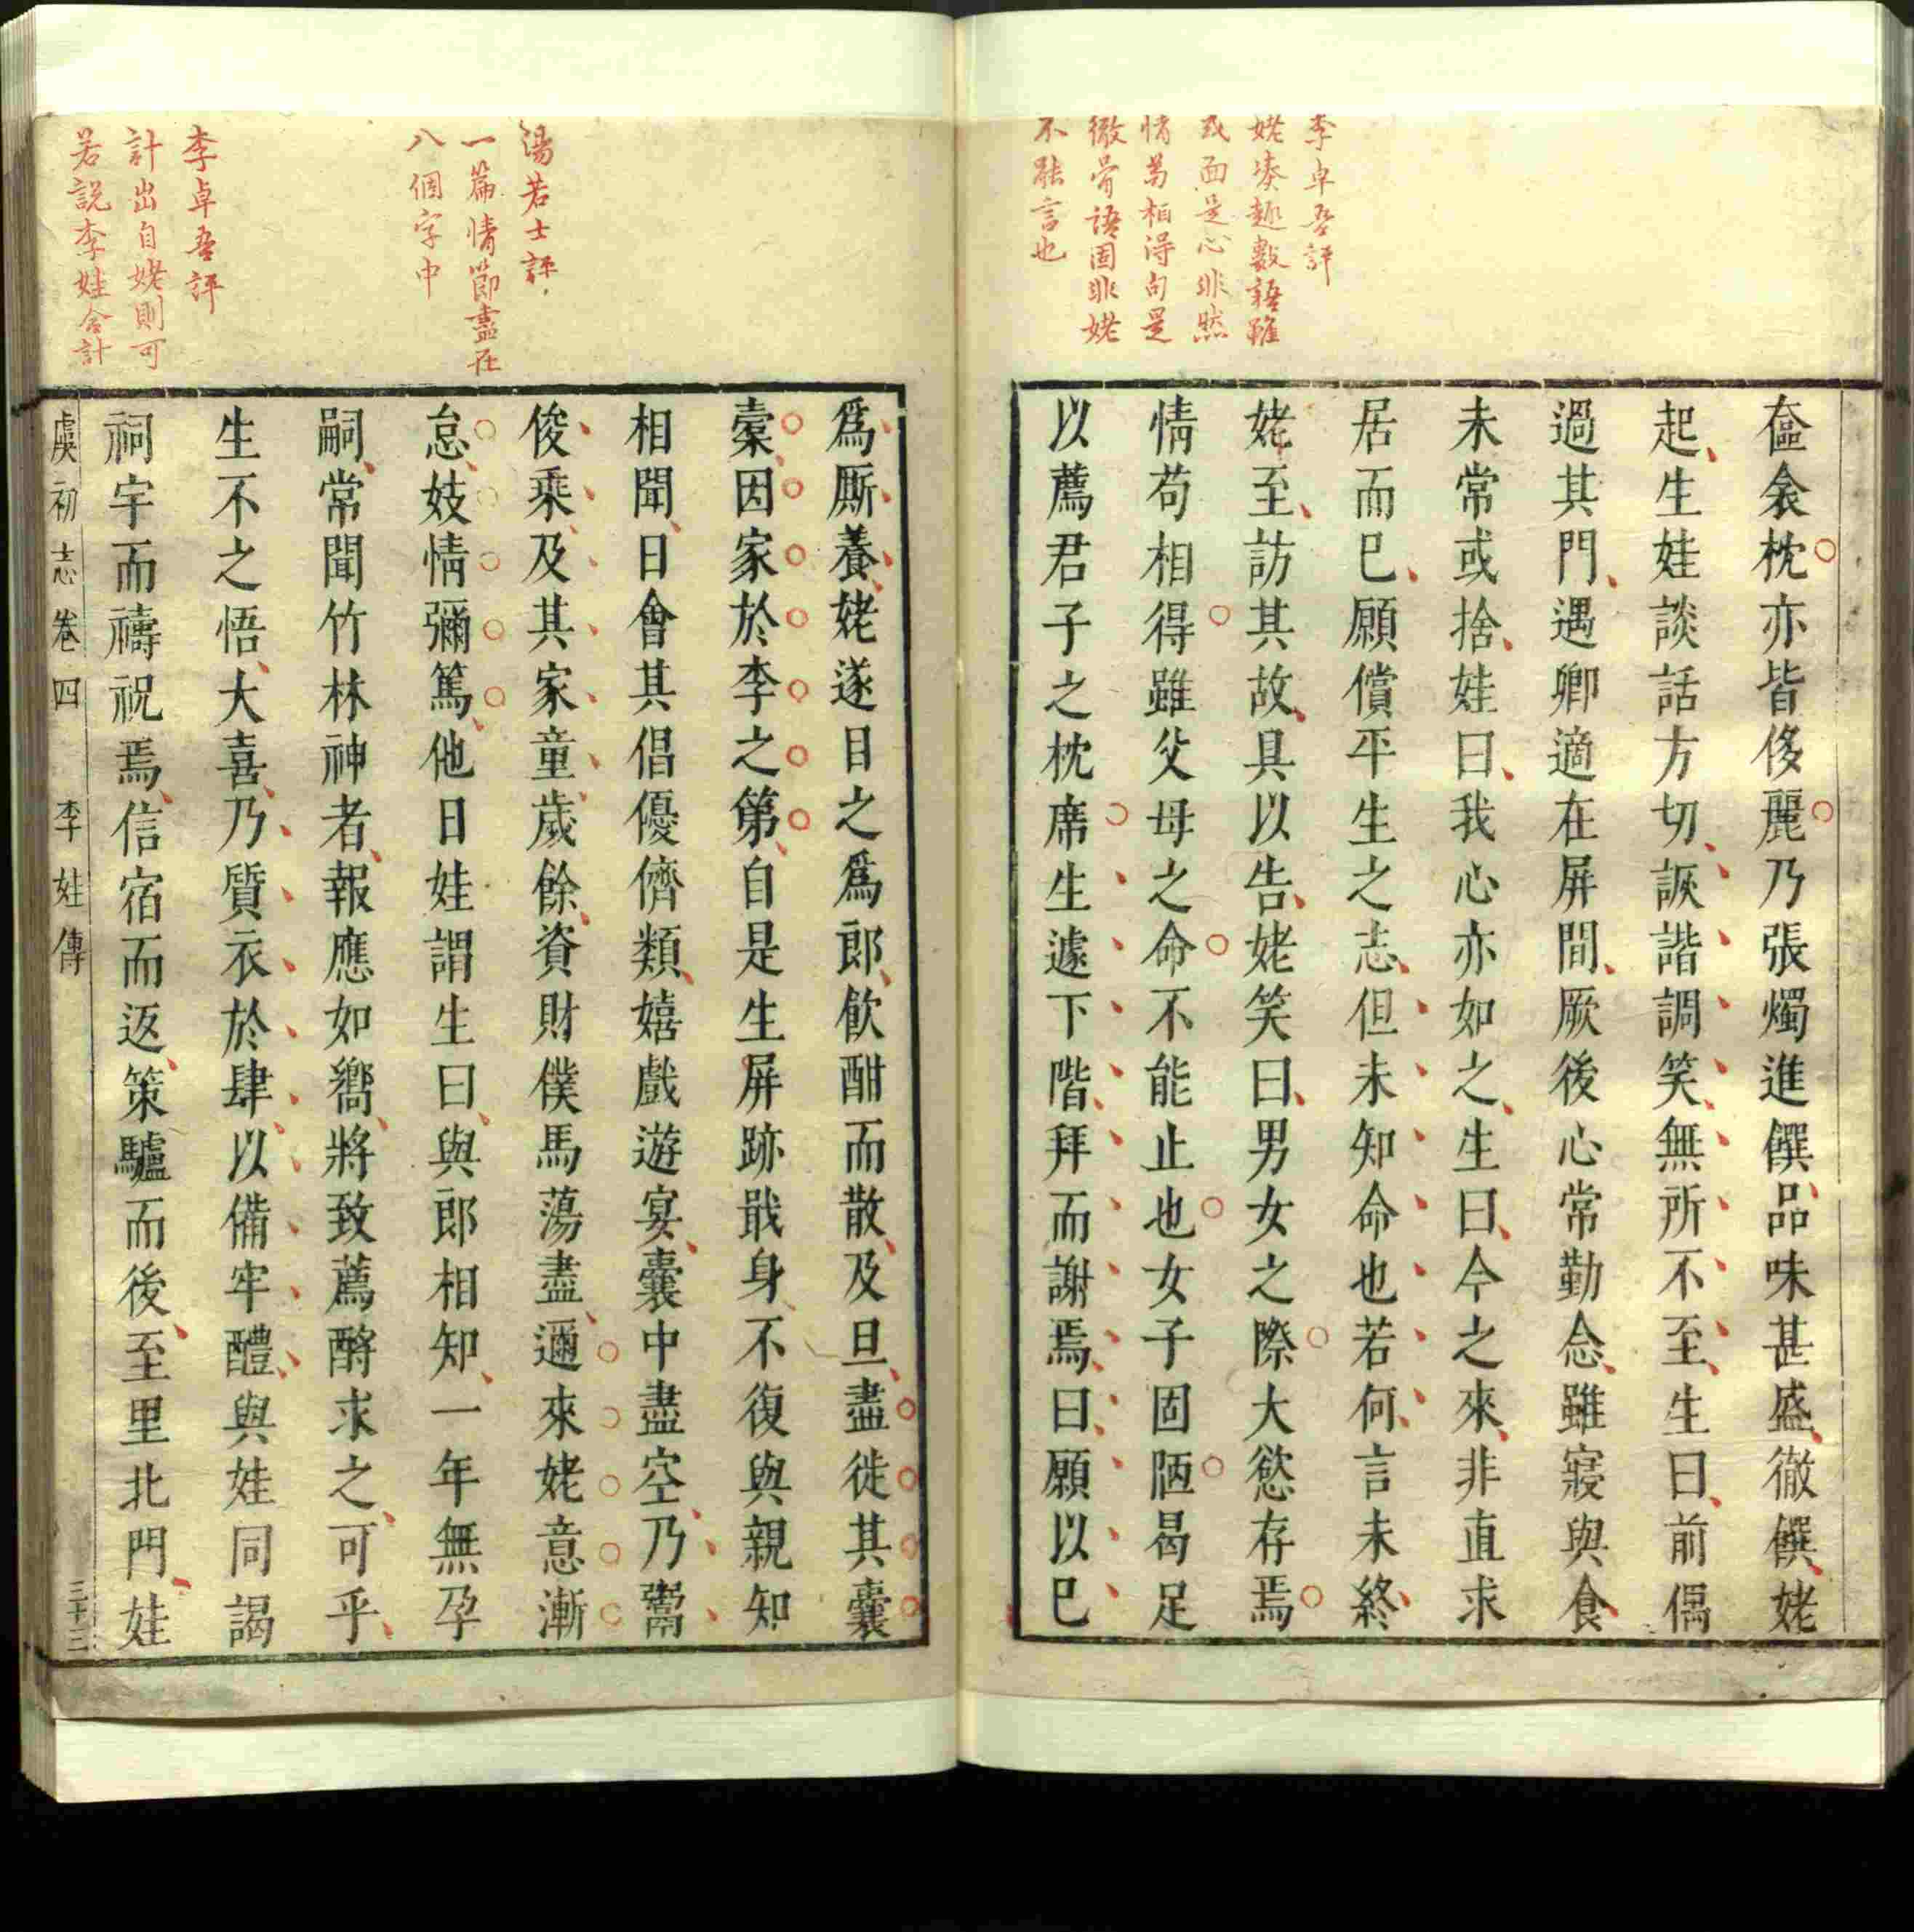 李卓吾評
姥湊趣數語雖
或面是心非然
情苟相得句是
徹骨語固非姥
不能言也
奩衾枕亦皆侈麗乃張燭進饌品味甚盛徹饌姥
起生娃談話方切詼諧調笑無所不至生曰前偶
過其門遇卿適在屏間厥後心常勤念雖寢與食
未常或捨娃曰我心亦如之生曰今之來非直求
居而已願償平生之志但未知命也若何言未終
姥至訪其故具以告姥笑曰男女之際大慾存焉
情苟相得雖父母之命不能止也女子固陋曷足
以薦君子之枕席生遽下階拜而謝焉曰願以巳
湯若士評
一篇情節盡在
八個字中
李卓吾評
計出自姥則可
若說李娃合計
爲厮養姥遂目之爲郎飲酣而散及旦盡徙其囊
橐因家於李之第自是生屏跡戢身不復與親知
相聞日會其倡優儕類嬉戲遊宴囊中盡空乃鬻
俊乘及其家童歲餘資財僕馬蕩盡邇來姥意漸
怠妓情彌篤他日娃謂生曰與郎相知一年無孕
嗣常聞竹林神者報應如嚮將致薦酹求之可乎
生不之悟大喜乃質衣於肆以備牢醴與娃同謁
祠宇而禱祝焉信宿而返策驢而後至里北門娃
虞初志卷四 李娃傳 三十三